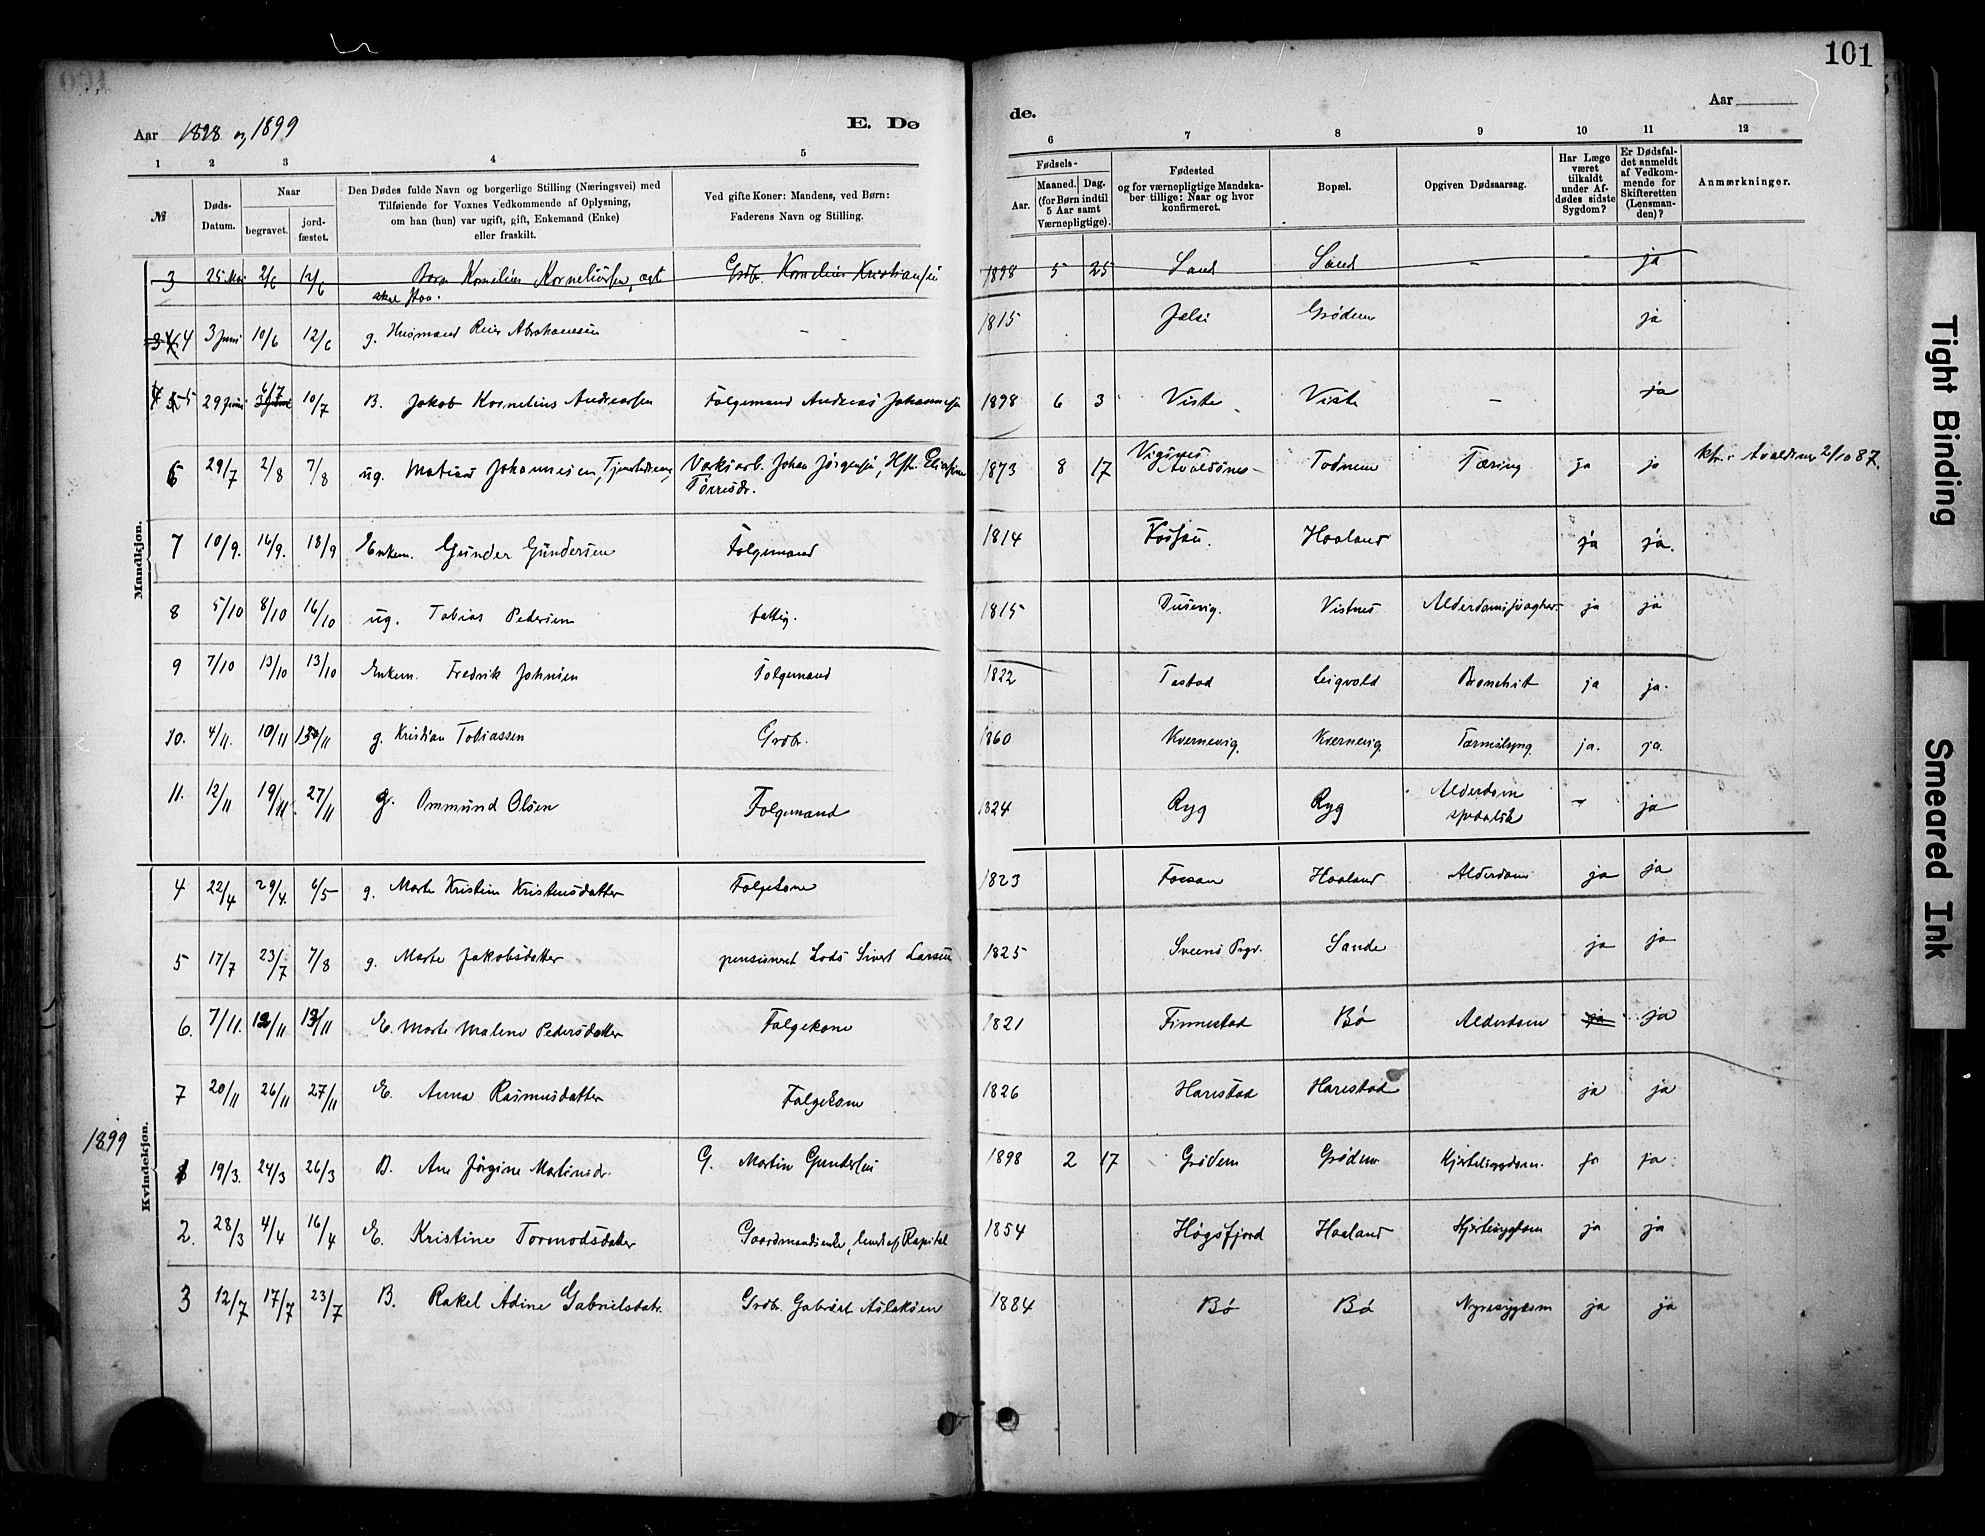 101
Aar 1898 og 1899
E. Dø
de.
Aar
1 2 3 4 5 6 7 8 9 10 11 12
№
Døds-Datum.
Naar
begravet.
jordfæstet.
Den Dødes fulde Navn og borgerlige Stilling (Næringsvei) med
Tilføiende for Voxnes Vedkommende af Oplysning,
om han (hun) var ugift, gift, Enkemand (Enke)
eller fraskilt.
Ved gifte Koner: Mandens, ved Børn:
Faderens Navn og Stilling.
Fødsels-
Aar.
Maaned. Dag.
(for Børn indtil
5 Aar samt
Værnepligtige).
Fødested
og for værnepligtige Mandska-
ber tillige: Naar og hvor
konfirmeret.
Bopæl.
Opgiven Dødsaarsag.
Har Læge
været
tilkaldt
under Af-
dødes sidste
Sygdom?
Er Dødsfal-
det anmeldt
af Vedkom-
mende for
Skifteretten
(Lensman-
den)?
Anmærkninger.
Mandkjøn.
3 25 Mai 2/6 12/6 Barn Kornelius Korneliussen, Grdbr. Kornelius Kristiansen 1898 5 25 Sand Sand - - ja
4 3 Juni 10/6 12/6 g. Husmand Reier Abrahamsen - 1815 Jelse Grødem ja
5 29 Juni 6/7 10/7 B. Jakob Kornelius Andreassen Folgemand Andreas Johannesen 1898 6 3 Viste Viste - ja
6 29/7 2/8 7/8 ug. Matias Johannesen, Tjenstedreng Johan Jørgensen, 1873 8 17 Vigsnes Avaldsnes Todnem Tæring ja ja kfr. i Avaldsnes 2/10 87.
7 10/9. 16/9. 18/9 Enkem. Gunder Gundersen Folgemand 1814 Fossan. Haaland ja ja.
8 5/10 8/10 16/10 ug. Tobias Pedersen fattig. 1815 Dusevig. Vistnes Alderdomssvaghed ja ja
9 7/10 13/10 13/10 Enkem. Fredrik Johnsen Folgemand 1822 Tastad Leigvold Bronchit ja ja.
10. 4/11. 10/11 13/11 g. Kristian Tobiassen Grdbr. 1860 Kvernevig. Kvernevig Tarmslyng. ja. ja.
11. 12/11 19/11. 27/11 g. Ommund Olsen Folgemand 1824 Ryg Ryg Alderdom spedalsk - ja
Kvindekjøn.
4 22/4 29/4. 6/5 g. Marte Kristine Kristensdatter Folgekone 1823 Fossan Haaland Alderdom ja ja
5 17/7 23/7 7/8 g. Marte Jakobsdatter pensioneret Lods Sivert Larsen 1825 Sveens Prgj. Sande ja ja
6. 7/11. 12/11 13/11 E. Marte Malene Pedersdatter Folgekone 1821 Finnestad Bø Alderdom ja ja
7 20/11 26/11 27/11 E. Anna Rasmusdatter Folgekone 1826 Harestad Harestad ja ja
1899
1 19/3. 24/3 26/3 B. Ane Jørgine Martinsdr. G. Martin Gundersen 1898 2 17 Grødem Grødem Kjertelsygdom. ja ja
2. 28/3 4/4 16/4 E. Kristine Tormodsdatter Gaardmandsenke, lever af Kapital 1854 Høgsfjord Haaland Hjertesygdom ja ja
3 12/7 17/7 23/7 B. Rakel Adine Gabrielsdatr. Grdbr. Gabriel Aslaksen 1884 Bø Bø Nyresygdom ja ja
Tight Binding
Smeared Ink